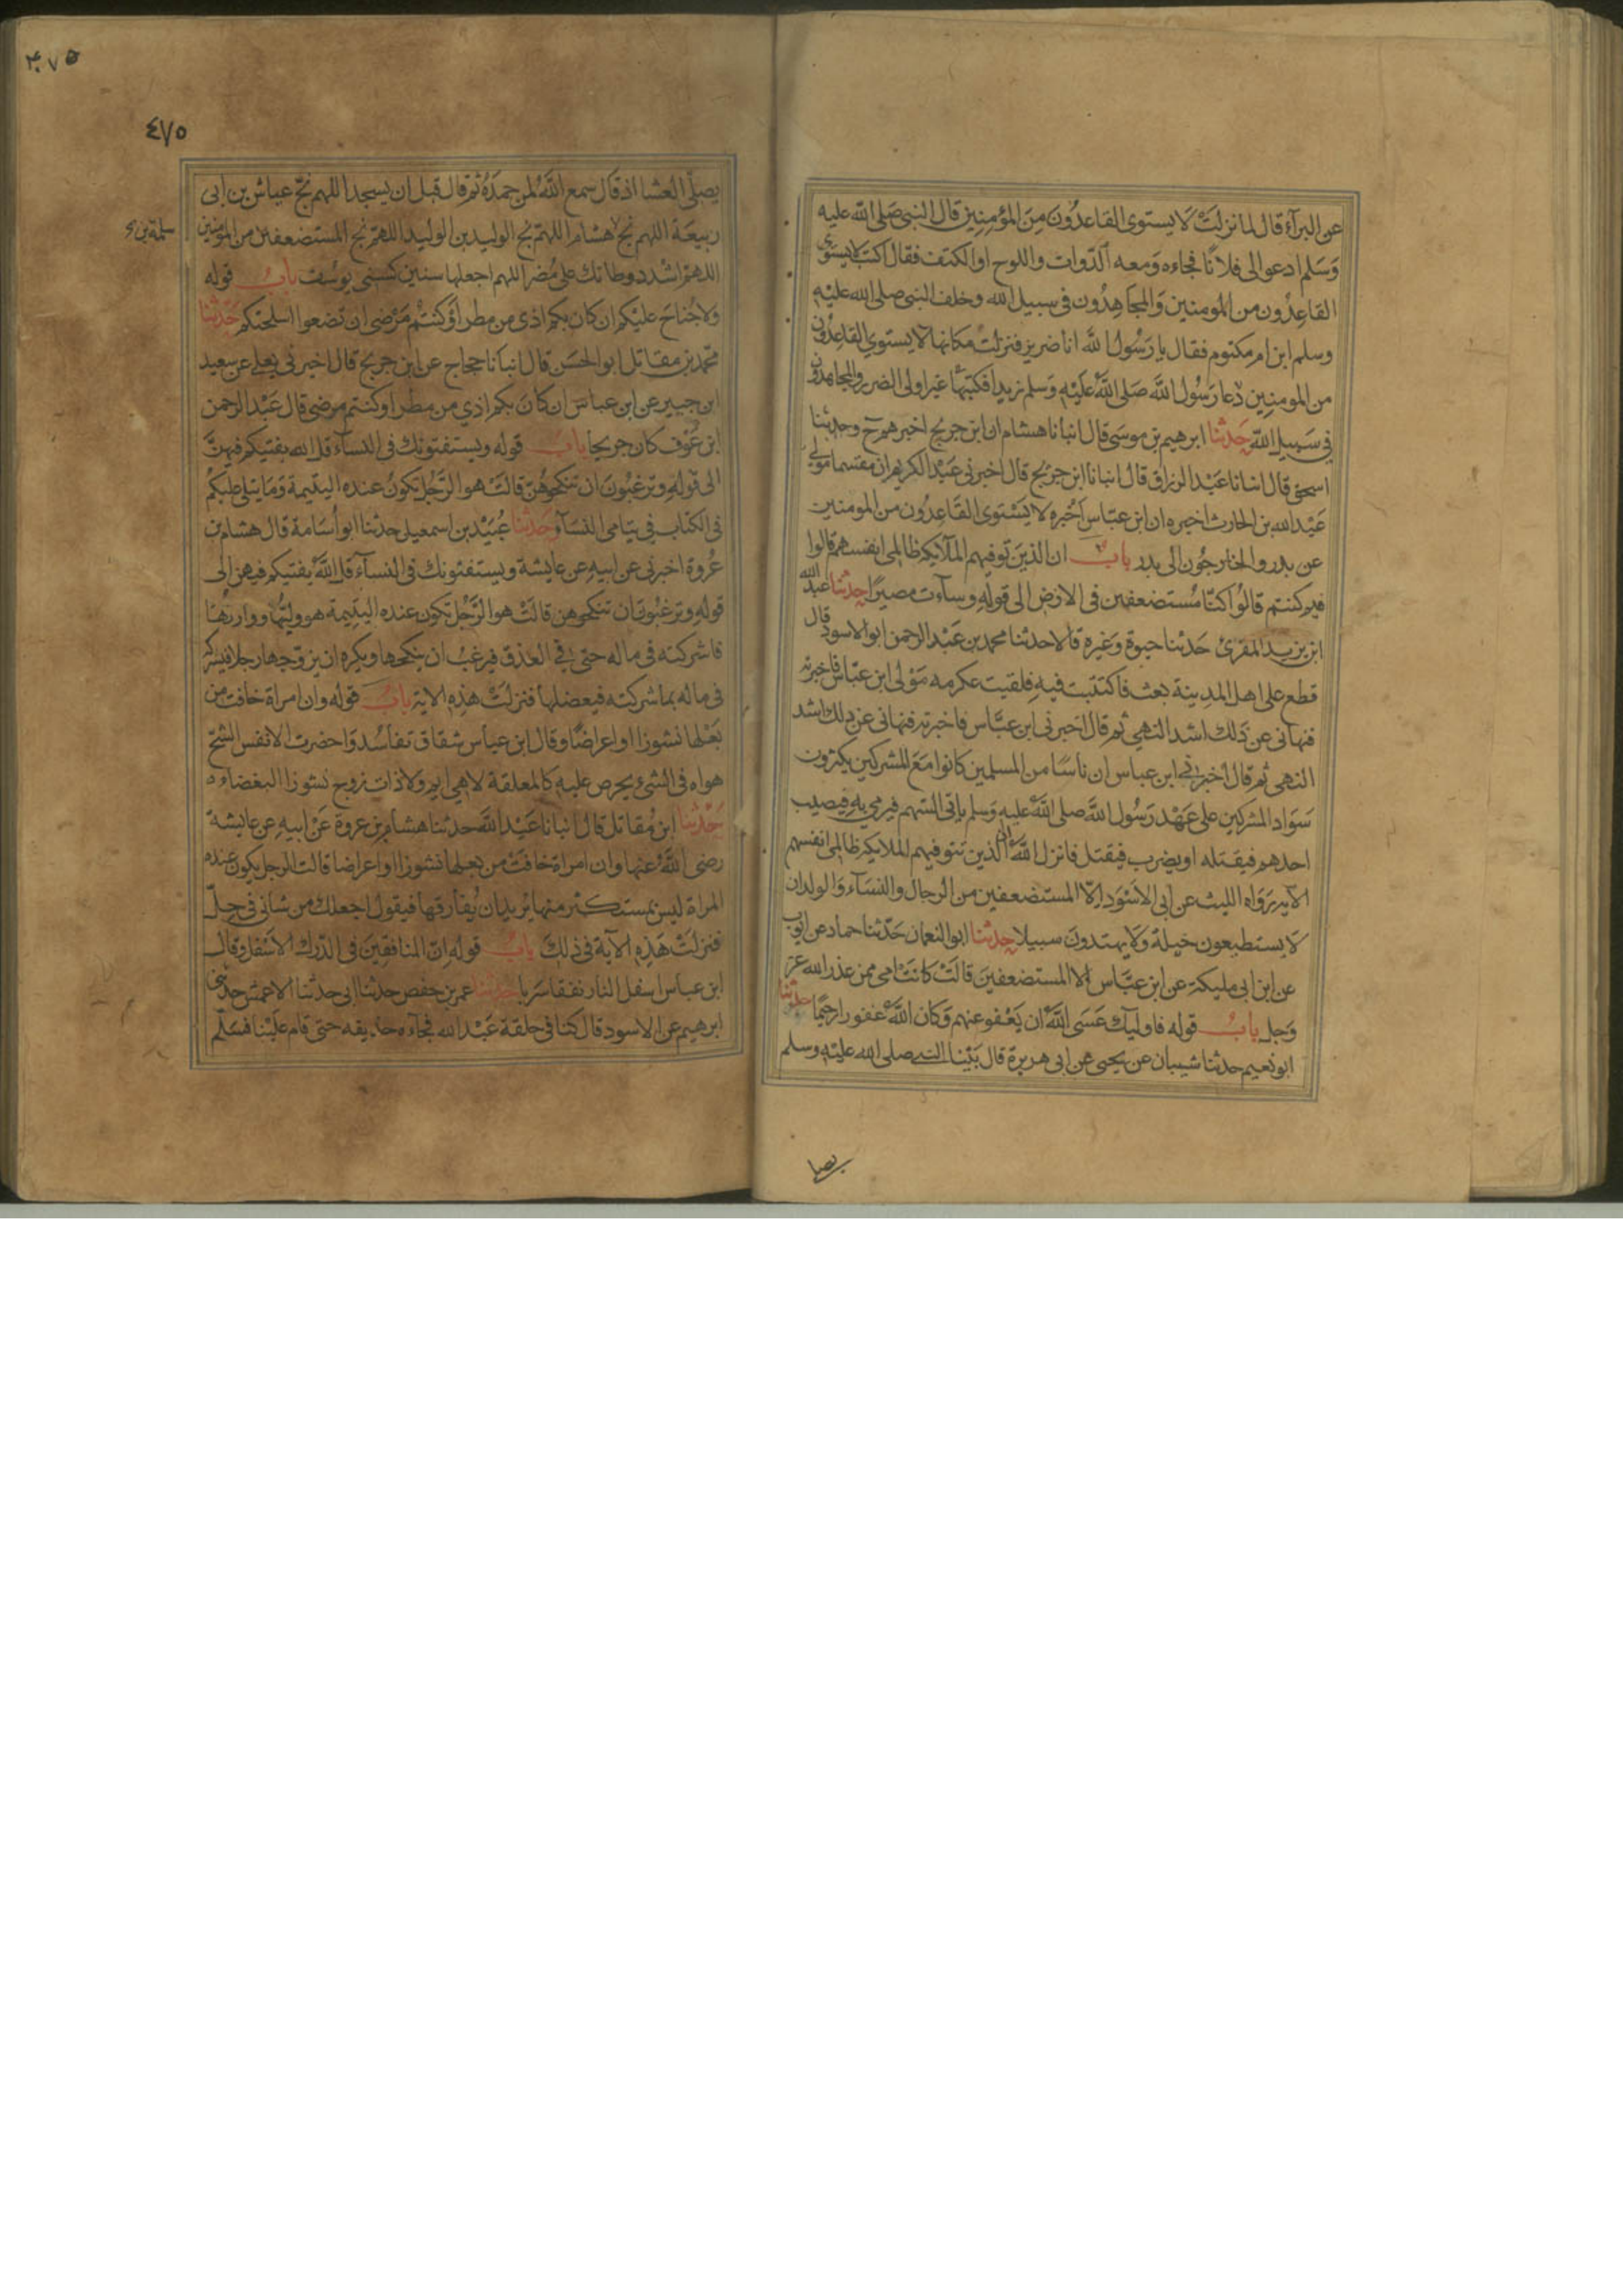 عن البرآء قال لما نزلت لا يستوى القاعدون من المؤمنين قال النبى صلى الله عليه
وسلم ادعوا لى فلانًا فجاءه ومعه الدوات واللوح او الكتف فقال اكتب لا يستوى
القاعدون من المومنين والمجاهدون فى سبيل الله وخلف النبى صلى الله عليه
وسلم ابن ام مكتوم فقال يا رسول الله انا ضرير فنزلت مكانها لا يستوى القاعدون
من المومنين غير اولى الضرر والمجاهدون
فى سبيل الله حدثنا ابرهيم بن موسى قال انبانا هشام ان ابن جريج اخبرهم ح وحدثنا
اسحق قال انبانا عبد الرزاق قال انبانا ابن جريج قال اخبرنى عبد الكريم ان مقسما مولى
عبد الله بن الحارث اخبره ان ابن عباس اخبره لا يستوى القاعدون من المومنين
عن بدر والخارجون الى بدر باب ان الذين توفيهم الملآئكة ظالمى انفسهم قالوا
فيم كنتم قالوا كنا مستضعفين فى الارض الى قوله وسآءت مصيرًا حدثنا عبد الله
ابن يزيد المقرئ حدثنا حيوة وغيره قالا حدثنا محمد بن عبد الرحمن ابو الاسود قال
قطع على اهل المدينة بعث فاكتتبت فيه فلقيت عكرمه مولى ابن عباس فاخبرته
فنهانى عن ذلك اشد النهى ثم قال اخبرنى ابن عباس فاخبرته فنهانى عن ذلك اشد
النهى ثم قال اخبرنى ابن عباس ان ناسًا من المسلمين كانوا مع المشركين يكثرون
سواد المشركين على عهد رسول الله صلى الله عليه وسلم ياتى السهم فيرمى به فيصيب
احدهم فيقتله او يضرب فيقتل فانزل الله ان الذين توفيهم الملايكة ظالمى انفسهم
الآية رواه الليث عن ابى الاسود الا المستضعفين من الرجال والنسآء والولدان
لا يستطيعون حيلة ولا يهتدون سبيلا حدثنا ابو النعمان حدثنا حماد عن ايوب
عن ابن ابى مليكة عن ابن عباس الا المستضعفين قالت كانت امى ممن عذر الله عز
وجل باب قوله فاوليك عسى الله ان يعفو عنهم وكان الله غفورا رحيمًا حدثنا
ابو نعيم حدثنا شيبان عن يحيى عن ابى هريرة قال بينا النبى صلى الله عليه وسلم
يصلى
٤٧٥
٤٧٥
يصلى العشا اذ قال سمع الله لمن حمده ثم قال قبل ان يسجد اللهم نج عياش بن ابى
ربيعة اللهم نج هشام اللهم نج الوليد بن الوليد اللهم نج المستضعفين من المومنين
سلمة بن
اللهم اشدد وطاتك على مضر اللهم اجعلها سنين كسنى يوسف باب قوله
ولا جناح عليكم ان كان بكم اذى من مطر او كنتم مرضى ان تضعوا اسلحتكم حدثنا
محمد بن مقاتل ابو الحسن قال انبانا حجاج عن ابن جريج قال اخبرنى يعلى عن سعيد
ابن جبير عن ابن عباس ان كان بكم اذى من مطر او كنتم مرضى قال عبد الرحمن
ابن عوف كان جريحا باب قوله ويستفتونك فى النسآء قل الله يفتيكم فيهن
الى قوله وترغبون ان تنكحوهن قالت هو الرجل تكون عنده اليتيمة وما يتلى عليكم
فى الكتاب فى يتامى النسآء حدثنا عبيد بن اسمعيل حدثنا ابو اسامة قال هشام بن
عروة اخبرنى عن ابيه عن عايشة ويستفتونك فى النسآء قل الله يفتيكم فيهن الى
قوله وترغبون ان تنكحوهن قالت هو الرجل تكون عنده اليتيمة هو وليها ووارثها
فاشركته فى ماله حتى فى العذق فيرغب ان ينكحها ويكره ان يزوجها رجلا فيشركه
فى ماله بما شركته فيعضلها فنزلت هذه الاية باب قوله وان امراة خافت من
بعلها نشوزا او اعراضًا وقال ابن عباس شقاق تفاسد واحضرت الانفس الشح
هواه فى الشئ يحرص عليه كالمعلقة لا هى ايم ولا ذات زوج نشوزا البغضاء
حدثنا ابن مقاتل قال انبانا عبد الله حدثنا هشام بن عروة عن ابيه عن عايشة
رضى الله عنها وان امراة خافت من بعلها نشوزا او اعراضا قالت الرجل يكون عنده
المراة ليس بمستكثر منها يريد ان يفارقها فيقول اجعلك من شانى فى حل
فنزلت هذه الآية فى ذلك باب قوله ان المنافقين فى الدرك الاسفل وقال
ابن عباس اسفل النار نفقا سربا حدثنا عمر بن حفص حدثنا ابى حدثنا الاعمش حدثنى
ابرهيم عن الاسود قال كنا فى حلقة عبد الله فجآء حذيفه حتى قام علينا فسلم